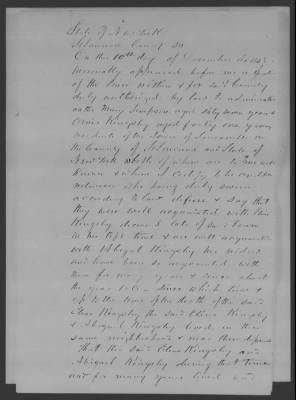 State of New York
St Lawrence County SS
On the 10th day of December
personally appeared before me a
of the Peace within & for said County
duly authorized by law to administer
oaths Mary Simpson aged sixty years &
Orris Kingsley aged forty one years
residents of the Town of
in the County of St Lawrence and State of
New York both of whom are to me well
known & whom I certify to be credible
witnesses who being duly sworn
according to Law depose & say that
they were well acquainted with
Kingsley deceased late of said Town
in his life time & are well acquainted
with Abigal Kingsley his widow
and have been so acquainted with
them for many years & since about
the year since which time &
up to the time of the death of the said
Kingsley the said Kingsley
& Abigal Kingsley lived in the
same neighborhood & near these deponents
That the said Kingsley and
Abigal Kingsley during that time
and for many years lived and